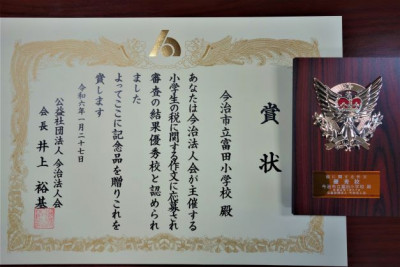 賞状
今治市立富田小学校 殿
あなたは今治法人会が主催する
小学生の税に関する作文に応募され
審査の結果優秀校と認められ
ました
よってここに記念品を贈りこれを
賞します
令和六年一月二十七日
公益社団法人 今治法人会
会長 井上裕基